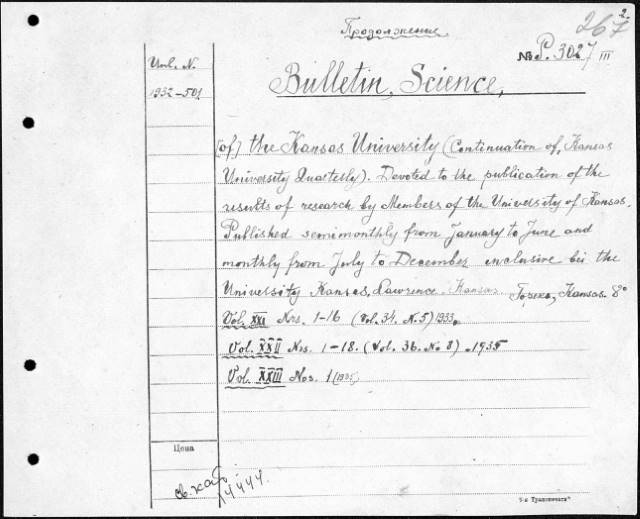 2.
267
Продолжение
№ P. 3027 III
Инв. N.
1932-501
Bulletin, Science,
(of) the Kansas University (Continuation of, Kansas
University Quaterly). Devoted to the publication of the
results of research by Members of the University of Kansas.
Published semimonthly from January to June and
monthly from July to December inclusive bei the
University Kansas, Lawrence. Kansas. Topeca, Kansas. 8°
Vol. XXI Nrs. 1-16 (Vol. 34. N. 5) 1933.
Vol. XXII Nrs. 1-18. (Vol. 36. No 8). 1935
Vol. XXIII Nos. 1 (1935)
Цена
св. каб
14444.